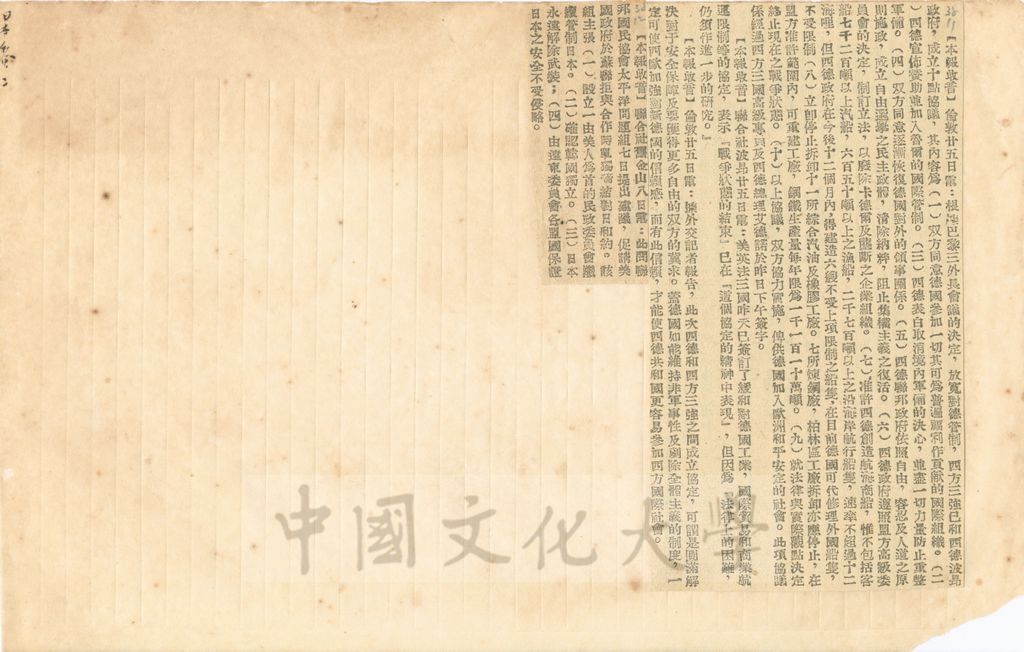 【本報收音】倫敦廿五日電：根據巴黎三外長會議的決定，放寬對德管制，西方三強已和西德波昂
政府，成立十點協議，其內容為（一）双方同意德國參加一切其可為普遍福利作貢獻的國際組織。（二
）西德宣佈贊助並加入魯爾的國際管制。（三）西德表白取消境內軍備的決心，並盡一切力量防止重整
軍備。（四）双方同意逐漸恢復德國對外的領事關係。（五）西德聯邦政府依照自由，容忍及人道之原
則施政，成立自由選舉之民主政體，清除納粹，阻止集權主義之復活。（六）西德政府遵照盟方高級委
員會的決定，制訂立法，以廢除卡德爾及壟斷之企業組織。（七）准許西德創造航海商船，惟不包括客
船七千二百噸以上汽船，六百五十噸以上之漁船，二千七百噸以上之沿海岸航行船隻，速率不超過十二
海哩，但西德政府在今後十二個月內，得建造六艘不受上項限制之船隻，在目前德國可代修理外國船隻，
不受限制（八）立卽停止拆卸十一所綜合汽油及橡膠工廠。七所煉鋼廠，柏林區工廠拆卸亦應停止，在
盟方准許範圍內，可重建工廠，鋼鐵生產量每年限為一千一百一十萬噸。（九）就法律與實際觀點決定
終止現在之戰爭狀態。（十）以上協議，双方協力實施，俾供德國加入歐洲和平安定的社會。此項協議
係經過西方三國高級專員及西德總理艾德諾於昨日下午簽字。
【本報收音】聯合社波昂廿五日電：美英法三國昨天已簽訂了緩和對德國工業，國際貿易和商業航
運限制等的協定，表示『戰爭狀態的結束』已在『這個協定的精神中表現』，但因為『法律上的困難，
仍須作進一步的研究。』
【本報收音】倫敦廿五日電：據外交記者報告，此次西德和西方三強之間成立協定，可謂是圓滿解
決對于安全保障及要獲得更多自由的双方的冀求。蓋德國如能維持非軍事性及剷除全體主義的制度，一
定可使西歐加強對新德國的信賴感，而有此信賴，才能使西德共和國更容易參加西方國際社會。
【本報收音】聯合社舊金山八日電：此間聯
邦國民協會太平洋問題組七日提出建議，促請美
國政府於蘇聯拒與合作時單獨締結對日和約。該
組主張（一）設立一由美人為首的民政委員會繼
續管制日本。（二）確認韓國獨立。（三）日本
永遠解除武裝；（四）由遠東委員會各盟國保證
日本之安全不受侵略。
中國文化大學